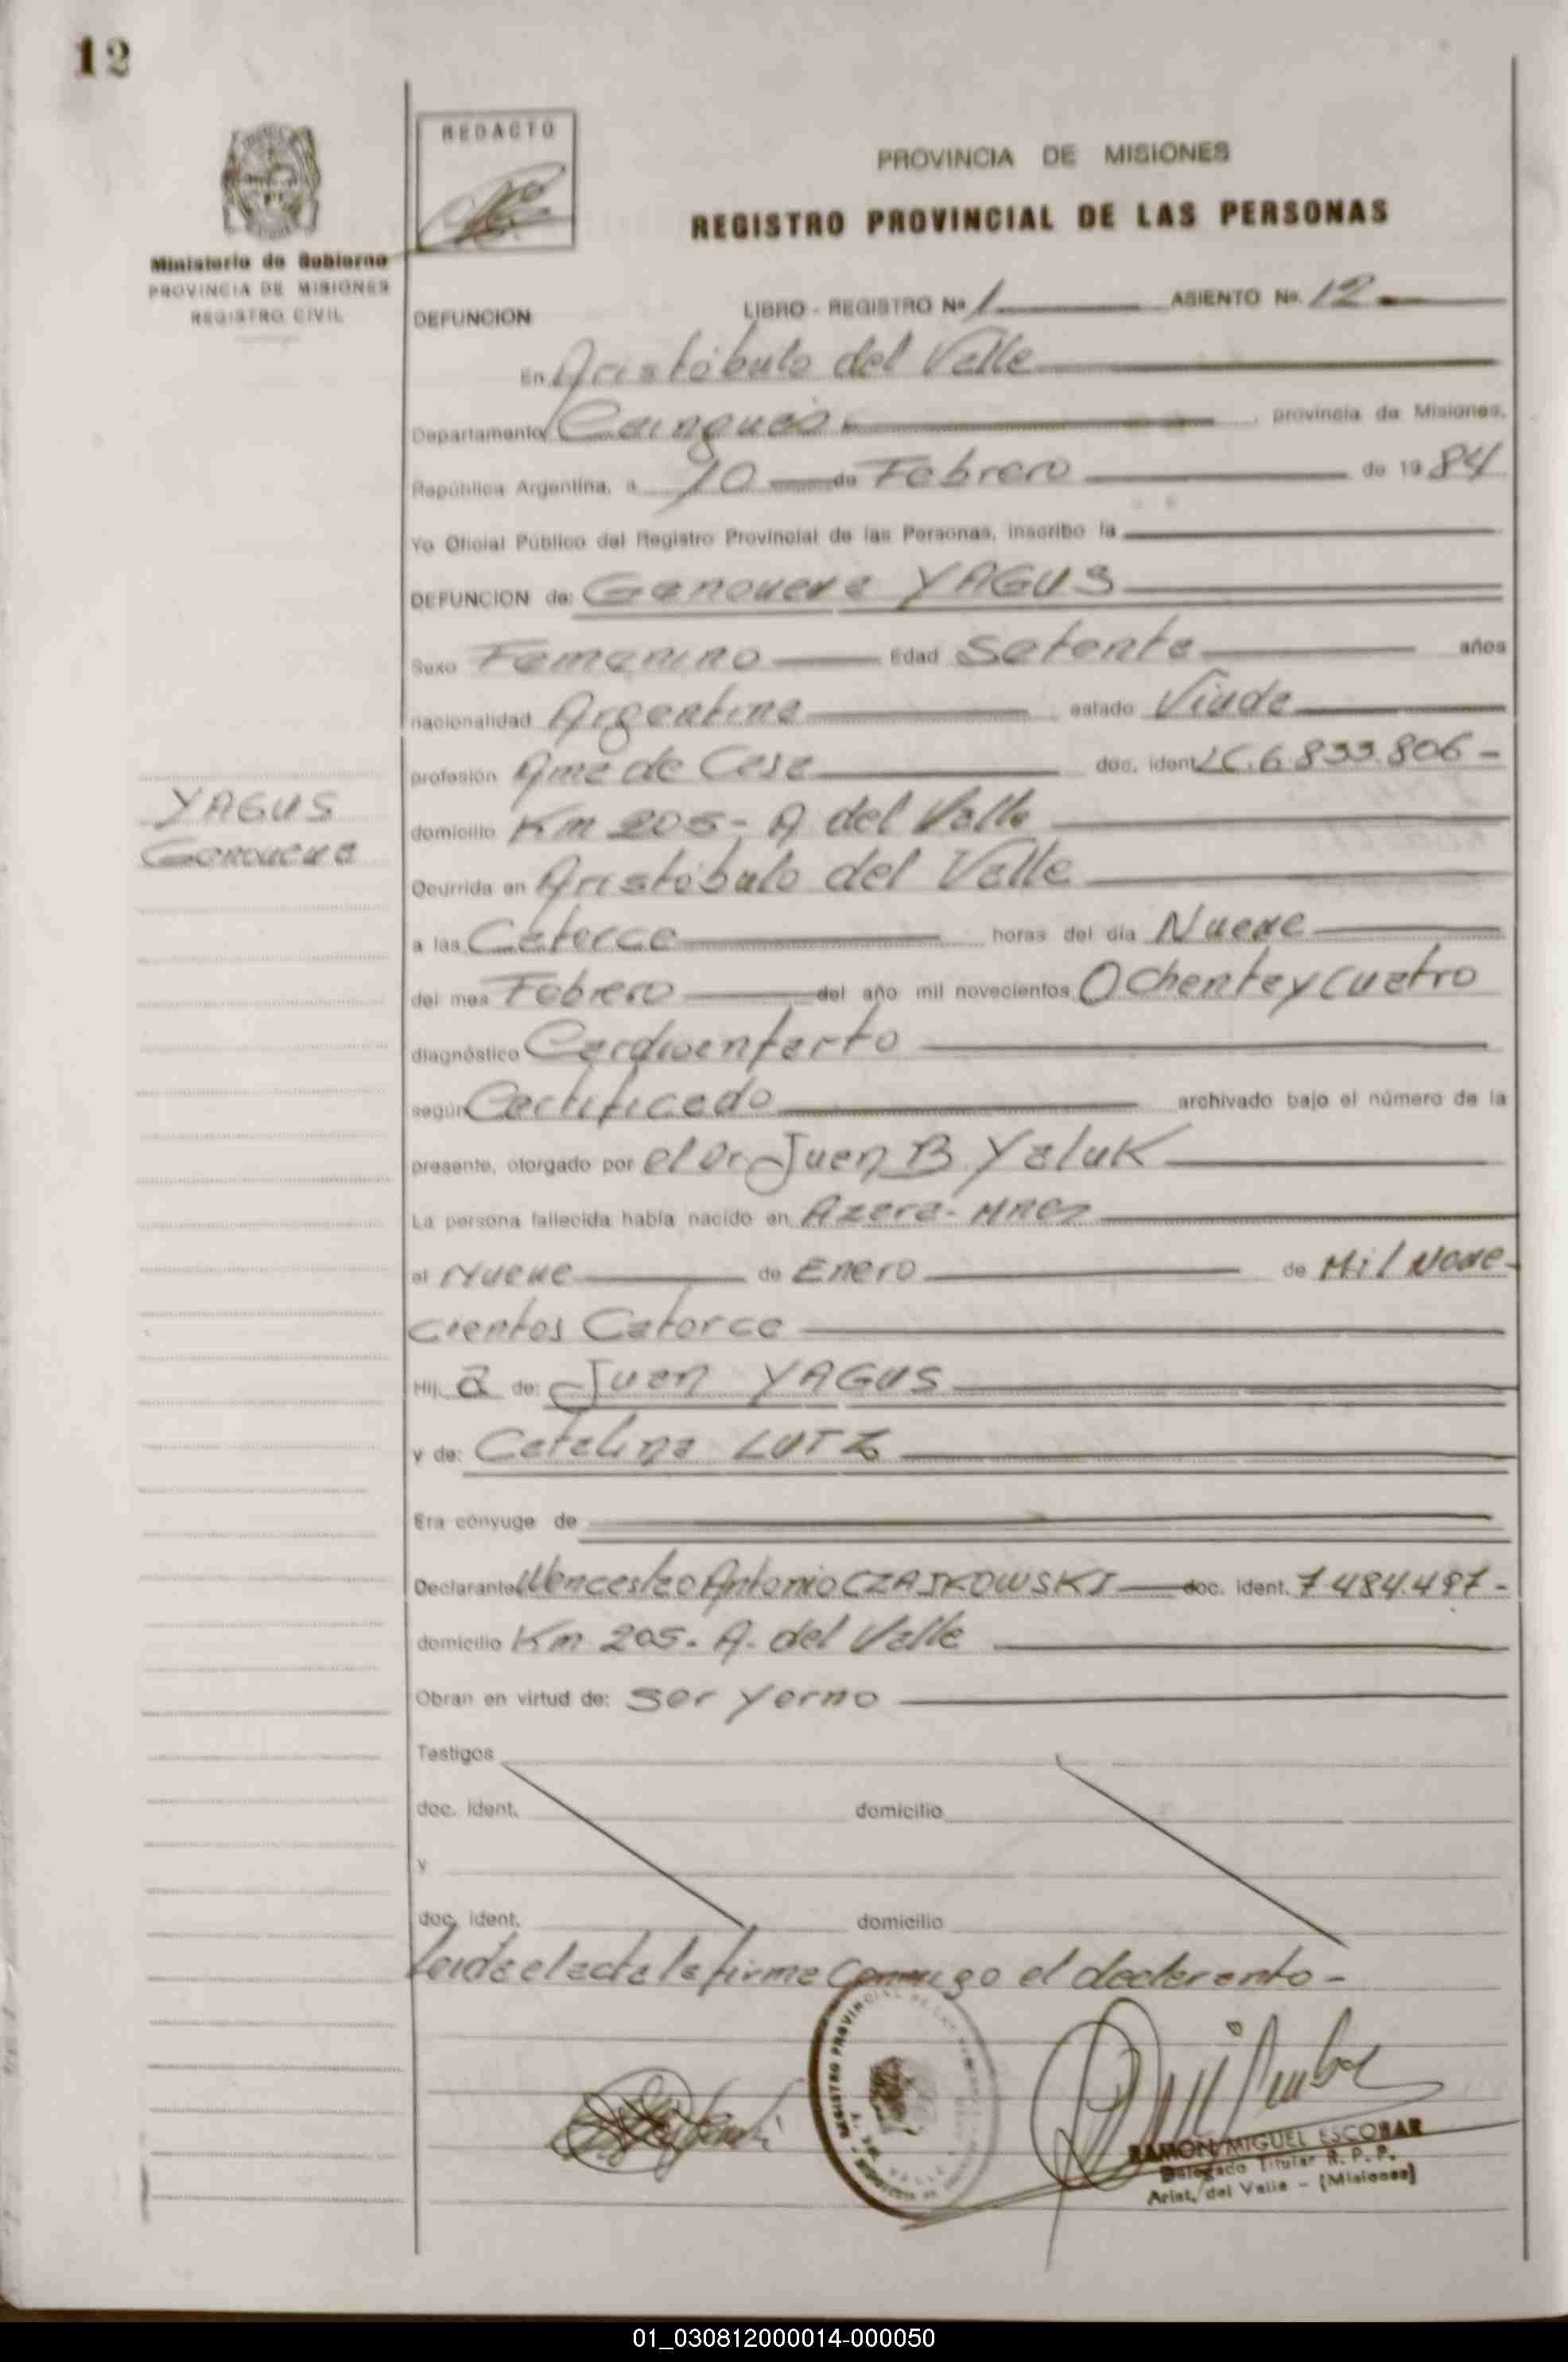 12
REDACTO
Ministerio de Gobierno
PROVINCIA DE MISIONES
REGISTRO CIVIL
PROVINCIA DE MISIONES
REGISTRO PROVINCIAL DE LAS PERSONAS
DEFUNCION LIBRO - REGISTRO Nº 1 ASIENTO Nº. 12
En Aristóbulo del Valle
Departamento Cainguás, provincia de Misiones,
República Argentina, a 10 de Febrero de 1984
Yo Oficial Público del Registro Provincial de las Personas, inscribo la
DEFUNCION de: Genoveva YAGUS
Sexo Femenino Edad Setenta años
nacionalidad Argentina estado Viuda
profesión Ama de Casa doc. ident. LC. 6.833.806-
domicilio Km 205- A del Valle
YAGUS
Genoveva
Ocurrida en Aristóbulo del Valle
a las Catorce horas del día Nueve
del mes Febrero del año mil novecientos Ochenta y Cuatro
diagnóstico Cardioenfarto
según Certificado archivado bajo el número de la
presente, otorgado por el Dr Juan B. Yaluk
La persona fallecida había nacido en Azara-
el Nueve de Enero de Mil Nove-
cientos Catorce
Hij a de: Juan YAGUS
y de: Catalina LUTZ
Era cónyuge de
Declarante Wenceslao Antonio CZAJKOWSKI doc. ident. 7.484.497-
domicilio Km 205. A. del Valle
Obran en virtud de: Ser Yerno
Testigos
doc. ident. domicilio
y
doc. ident. domicilio
Leida el acta la firma conmigo el declarante-
REGISTRO PROVINCIAL DE LAS
RAMON MIGUEL ESCOBAR
Delegado Titular R. P. P.
Arist. del Valle - (Misiones)
01_030812000014-000050